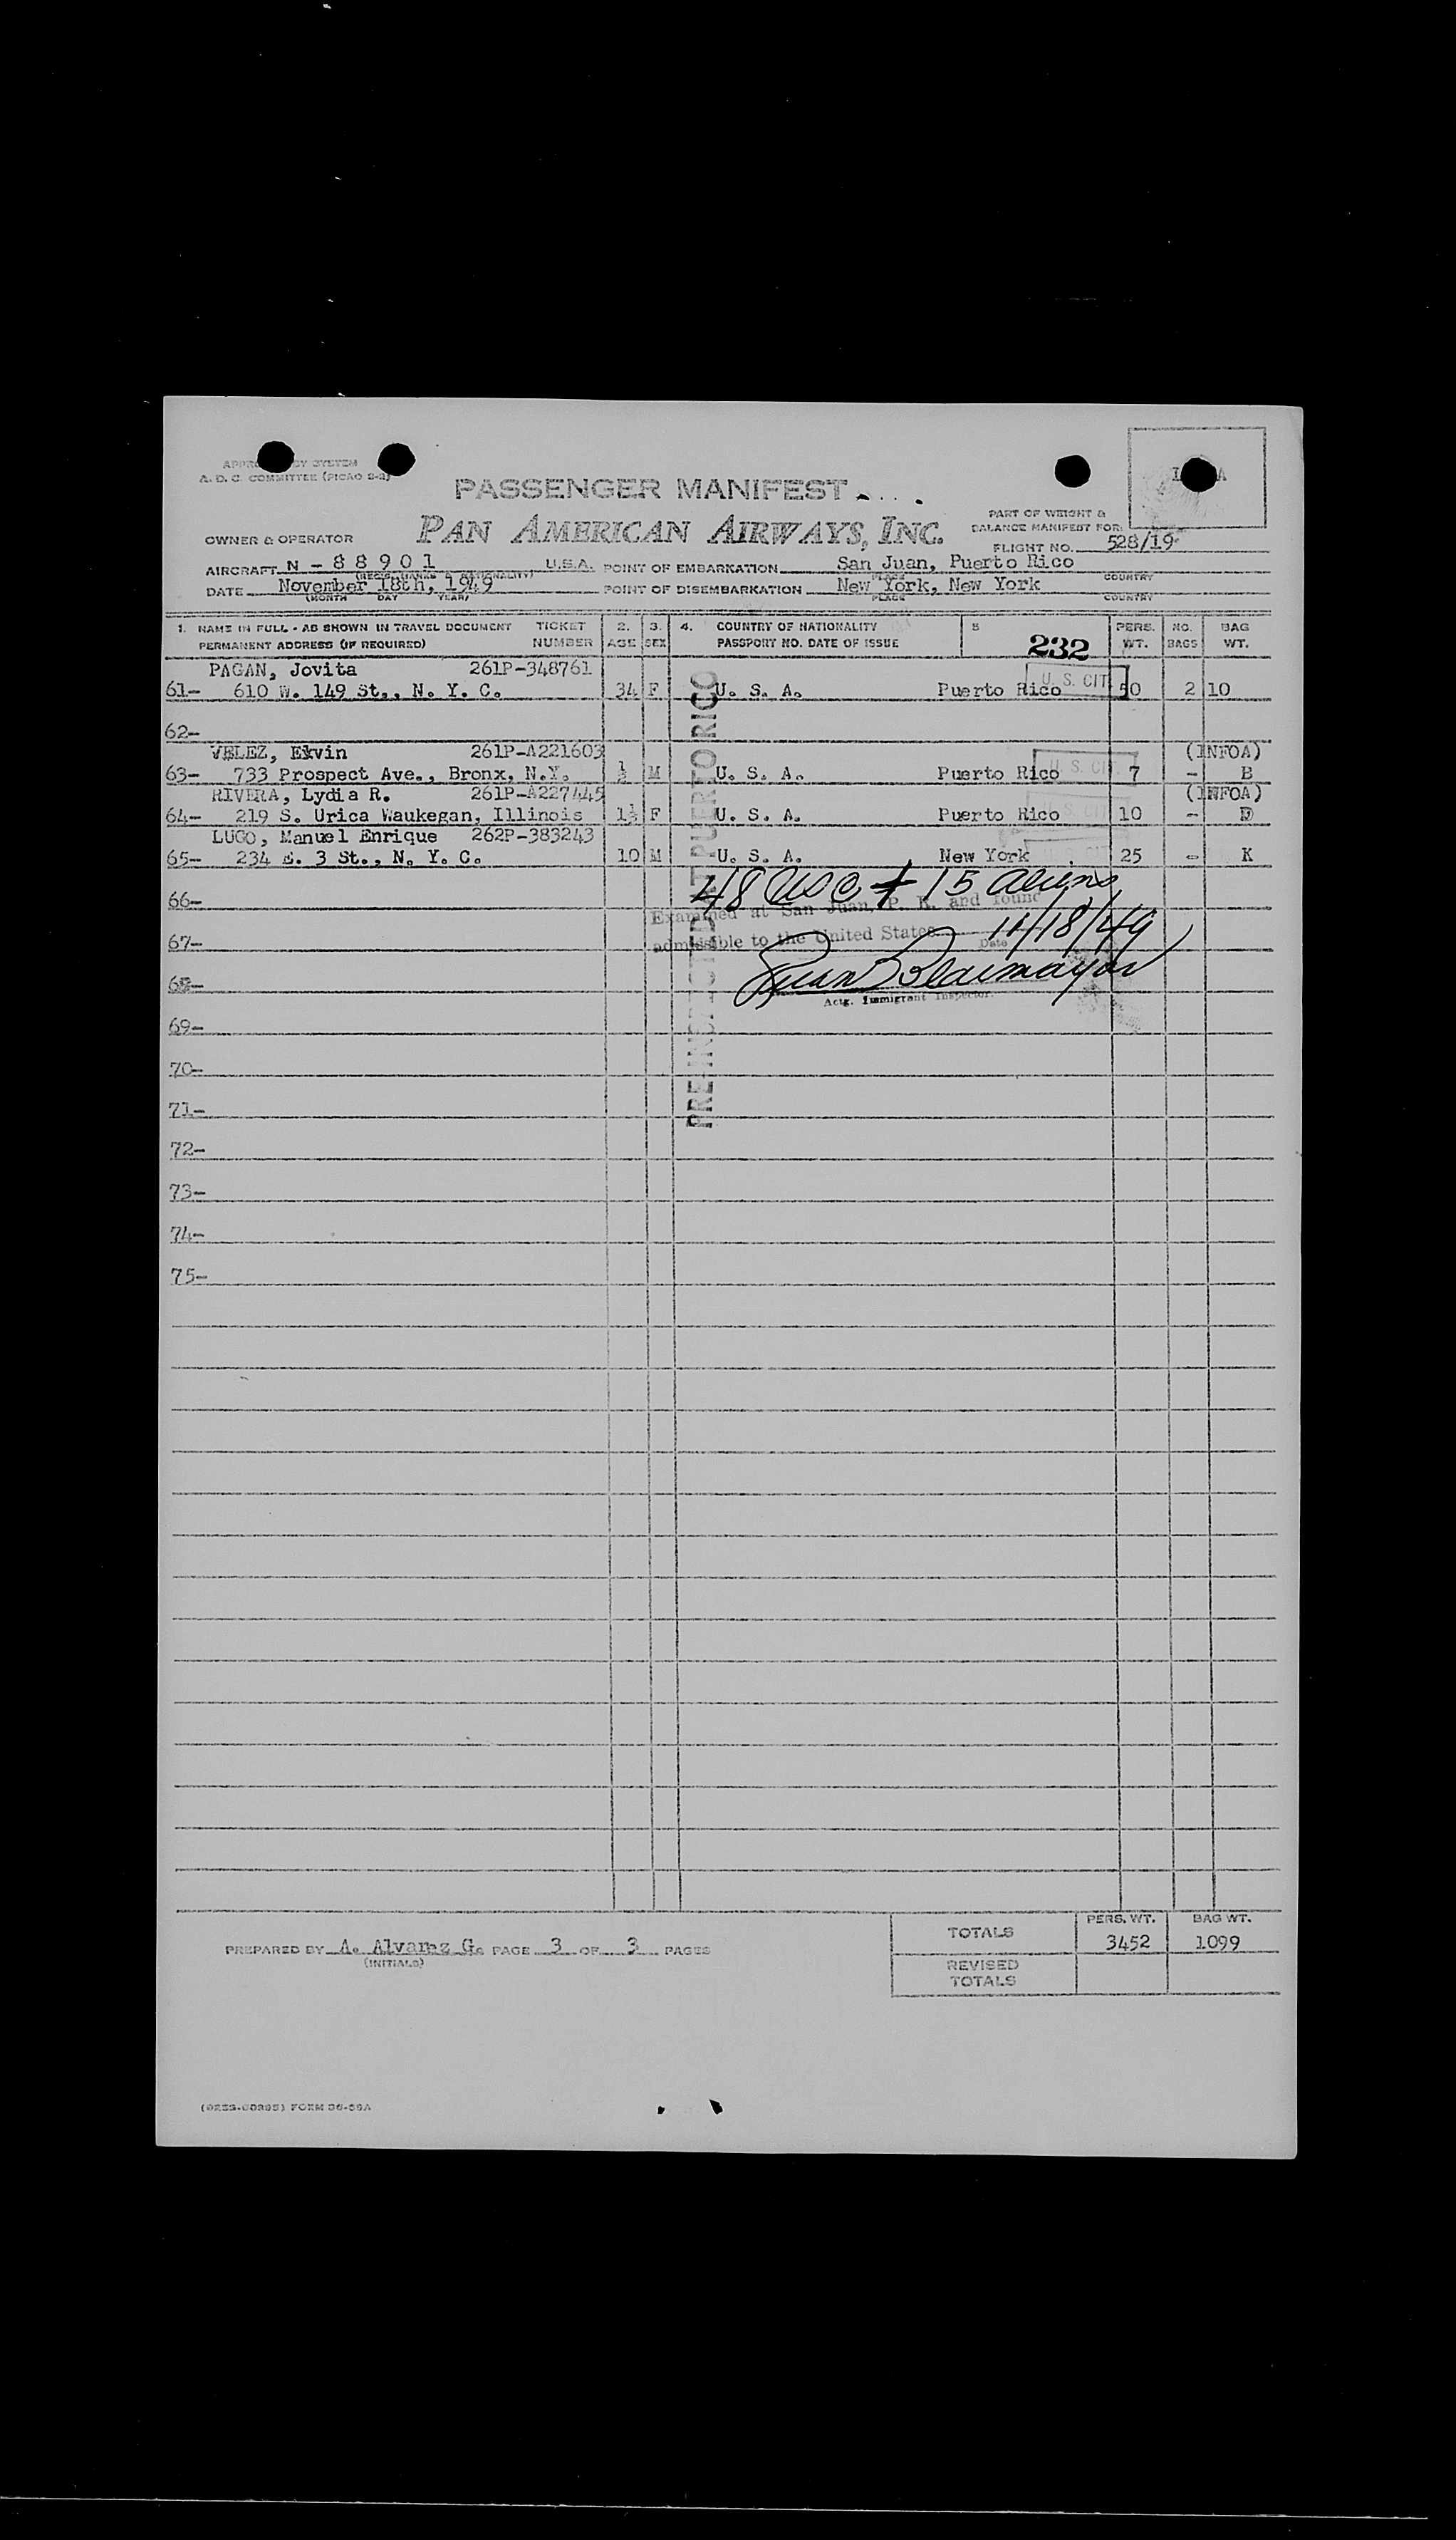 A. D. C. COMMITTEE (PICAO S-2)
PASSENGER MANIFEST
PAN AMERICAN AIRWAYS, INC.
PART OF WEIGHT &
BALANCE MANIFEST FOR:
OWNER & OPERATOR
FLIGHT NO. 528/19
AIRCRAFT N - 8 8 9 0 1 U.S.A. POINT OF EMBARKATION San Juan, Puerto Rico
PLACE COUNTRY
DATE November 18th, 1949 POINT OF DISEMBARKATION New York, New York
(MONTH DAY YEAR) PLACE COUNTRY
1. NAME IN FULL - AS SHOWN IN TRAVEL DOCUMENT TICKET 2. 3. 4. COUNTRY OF NATIONALITY 5 PERS. NO. BAG
PERMANENT ADDRESS (IF REQUIRED) NUMBER AGE SEX PASSPORT NO. DATE OF ISSUE 232 WT. BAGS WT.
PAGAN, Jovita 261P-348761
61- 610 W. 149 St., N. Y. C. 34 F U. S. A. Puerto Rico U. S. CIT 50 2 10
62-
VELEZ, Elvin 261P-A221603 (INFOA)
63- 733 Prospect Ave., Bronx, N.Y. ½ M U. S. A. Puerto Rico U. S. CIT 7 - B
RIVERA, Lydia R. 261P-A227445 (INFOA)
64- 219 S. Urica Waukegan, Illinois 1½ F U. S. A. Puerto Rico U. S. CIT 10 - D
LUGO, Manuel Enrique 262P-383243
65- 234 E. 3 St., N. Y. C. 10 M U. S. A. New York 25 - K
48 USC + 15 Aliens
66-
Examined at San Juan, P. R. and found
67-
admissible to the United States Date 11/18/49
68-
Actg. Immigrant Inspector.
PRE-INSPECTED AT PUERTO RICO
69-
70-
71-
72-
73-
74-
75-
PERS. WT. BAG WT.
TOTALS 3452 1099
PREPARED BY A. Alvarez G. PAGE 3 OF 3 PAGES
(INITIALS)
REVISED
TOTALS